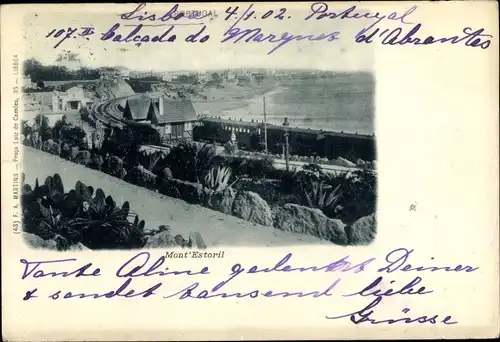 PORTUGAL
Lisbo 4/1.02 Portugal
107 III Calçada do Marquez d'Abrantes
(48) F. A. MARTINS — Praça Luiz de Camões, 35 — LISBOA
Mont'Estoril
Tante Aline gedenkt Deiner
& sendet tausend liebe
Grüsse